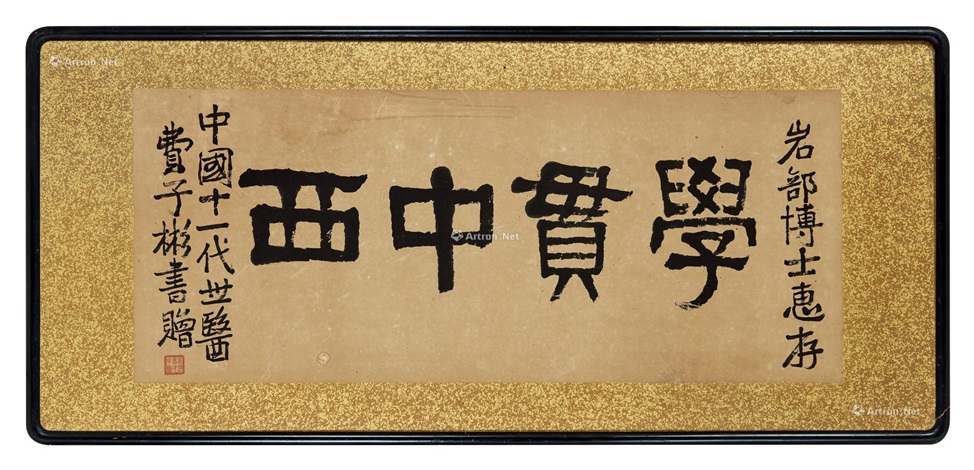 岩部博士惠存
學貫中西
中國十一代世醫
費子彬書贈
Artron.Net
Artron.Net
Artron.Net